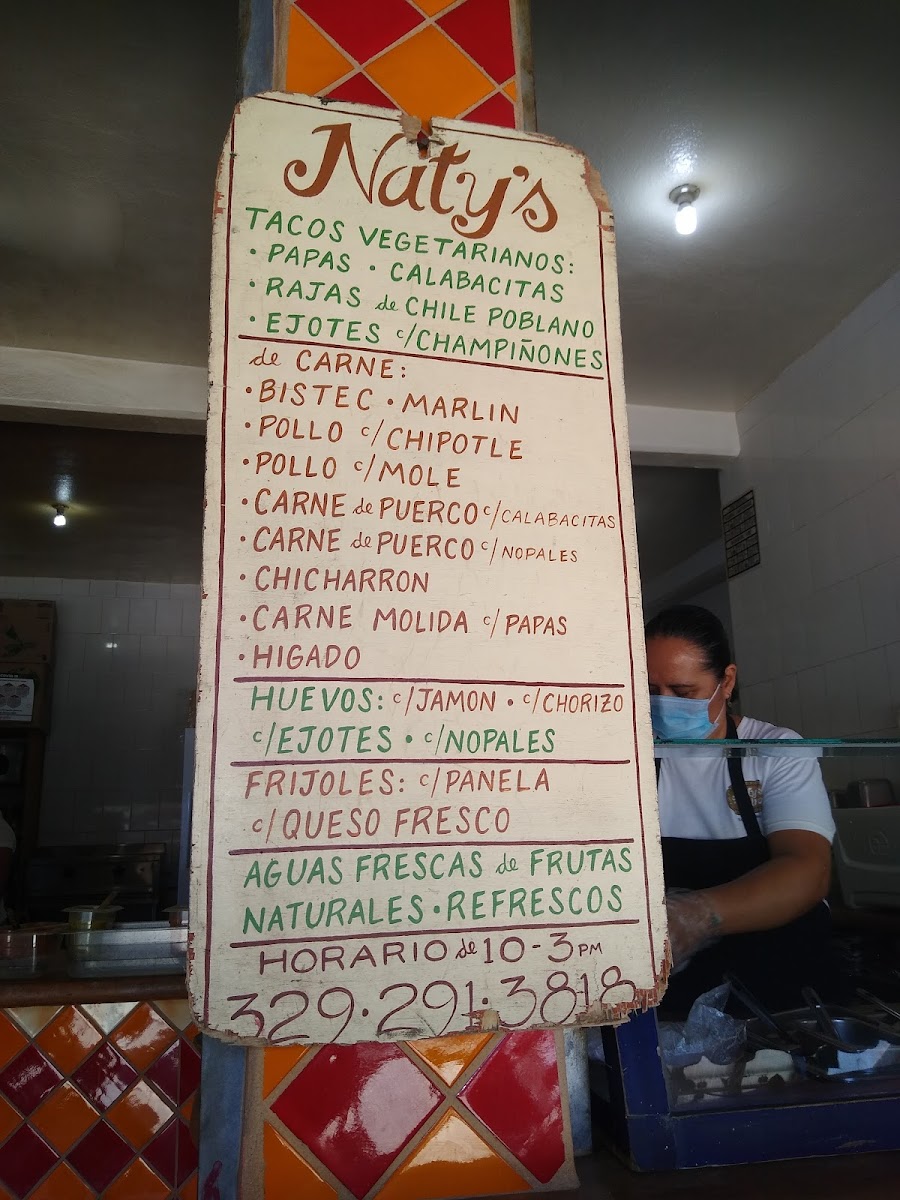 Naty's
TACOS VEGETARIANOS:
• PAPAS • CALABACITAS
• RAJAS de CHILE POBLANO
• EJOTES c/CHAMPIÑONES
de CARNE:
• BISTEC • MARLIN
• POLLO c/CHIPOTLE
• POLLO c/MOLE
• CARNE de PUERCO c/CALABACITAS
• CARNE de PUERCO c/NOPALES
• CHICHARRON
• CARNE MOLIDA c/PAPAS
• HIGADO
HUEVOS: c/JAMON • c/CHORIZO
c/EJOTES • c/NOPALES
FRIJOLES: c/PANELA
c/QUESO FRESCO
AGUAS FRESCAS de FRUTAS
NATURALES • REFRESCOS
HORARIO de 10-3 PM
329•291•3818